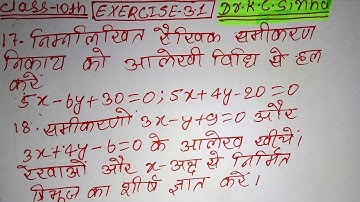 Class-10th EXERCISE-3.1 Dr. K.C. Sinha
17. निम्नलिखित रैखिक समीकरण
निकाय को आलेखी विधि से हल
करें
5x-6y+30=0; 5x+4y-20=0
18. समीकरणों 3x-y+9=0 और
3x+4y-6=0 के आलेख खींचें।
रेखाओं और x-अक्ष से निर्मित
त्रिभुज का शीर्ष ज्ञात करें।